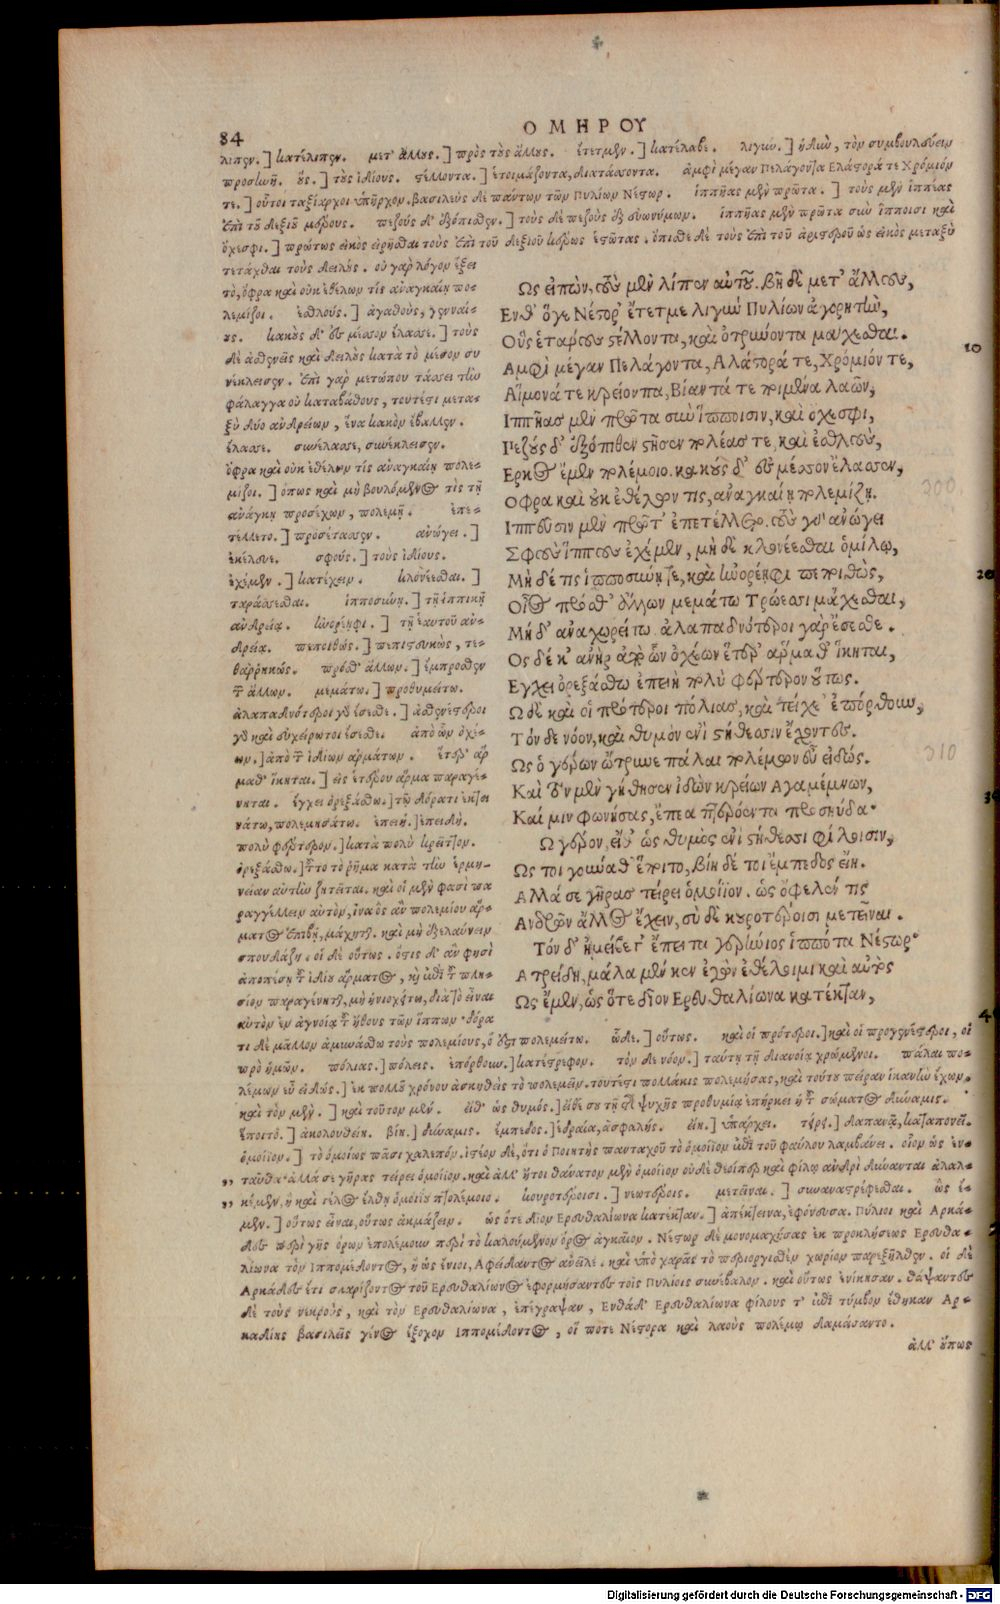 84
ΟΜΗΡΟΥ
λιπεν.] κατέλιπεν. μετ' ἄλλους.] πρὸς τοὺς ἄλλους. ἔτετμεν.] κατέλαβε. λιγιὺ.] ἡδιὺ, τὸν συμβουλεύειν
προσηνῆ. οὕς.] τοὺς ἰδίους. στέλλοντα.] ἑτοιμάζοντα, διατάσσοντα. ἀμφὶ μέγαν Πελάγοντα Ἐλάστορά τε Χρόμιόν
τε.] οὗτοι ταξίαρχοι ὑπῆρχον. βασιλεὺς δὲ πάντων τῶν Πυλίων Νέστωρ. ἱππῆας μὲν πρῶτα.] τοὺς μὲν ἱππέας
ἐπὶ τοῦ δεξιοῦ μέρους. πεζοὺς δ' ἐξόπιθεν.] τοὺς δὲ πεζοὺς ἐξ εὐωνύμων. ἱππῆας μὲν πρῶτα σὺν ἵπποισι καὶ
ὄχεσφι.] πρώτως εἰκὸς εἰρῆσθαι τοὺς ἐπὶ τοῦ δεξιοῦ κέρως ἑστῶτας. ὄπισθε δὲ τοὺς ἐπὶ τοῦ ἀριστεροῦ ὡς εἰκὸς μεταξὺ
τετάχθαι τοὺς δειλούς. οὐ γὰρ λόγον ἕξει
τὸ, ὄφρα καὶ οὐκ ἐθέλων τὶς ἀναγκαίῃ πο-
λεμίζοι. ἐσθλούς.] ἀγαθοὺς, γενναί-
ους. κακοὺς δ' ἐς μέσσον ἔλασσε.] τοὺς
δὲ ἀσθενεῖς καὶ δειλοὺς κατὰ τὸ μέσον συ
νέκλεισεν. ἐπὶ γὰρ μετώπου τάσσει τὴν
φάλαγγα οὐ καταβάθους, τουτέστι μετα-
ξὺ δύο ἀνδρείων, ἕνα κακὸν ἔβαλλεν.
ἔλασσε. συνέλασσε, συνέκλεισεν.
ὄφρα καὶ οὐκ ἐθέλων τὶς ἀναγκαίῃ πολε-
μίζοι.] ὅπως καὶ μὴ βουλόμενος τὶς τῇ
ἀνάγκῃ προσέχων, πολεμῇ. ἐπε-
τέλλετο.] προσέτασσεν. ἀνώγει.]
ἐκέλευε. σφούς.] τοὺς ἰδίους.
ἐχέμεν.] κατέχειν. κλονέεσθαι.]
ταράσσεσθαι. ἱπποσύνῃ.] τῇ ἱππικῇ
ἀνδρείᾳ. ἠνορέηφι.] τῇ ἑαυτοῦ ἀν-
δρείᾳ. πεποιθώς.] πεπιστευκὼς, τε-
θαρρηκώς. πρόσθ' ἄλλων.] ἔμπροσθεν
τῶν ἄλλων. μεμάτω.] προθυμείτω.
ἀλαπαδνότεροι γὰρ ἔσεσθε.] ἀσθενέστεροι
γὰρ καὶ εὐχείρωτοι ἔσεσθε. ἀπὸ ὧν ὀχέ-
ων.] ἀπὸ τῶν ἰδίων ἁρμάτων. ἕτερ' ἅρ
μαθ' ἵκηται.] εἰς ἕτερον ἅρμα παραγέ-
νηται. ἔγχει ὀρεξάσθω.] τῷ δόρατι ἐκτει
νάτω, πολεμησάτω. ἐπειή.] ἐπειδή.
πολὺ φέρτερον.] κατὰ πολὺ κρεῖττον.
ὀρεξάσθω.] τοῦτο τὸ ῥῆμα κατὰ τὴν ἑρμη-
νείαν αὐτὴν ζητεῖται. καὶ οἱ μὲν φασὶ πα
ραγγέλλειν αὐτὸν, ἵνα ὃς ἂν πολεμίου ἅρ-
ματος ἐπιβῇ, μάχηται. καὶ μὴ ἐξελαύνειν
σπουδάζῃ. οἱ δὲ οὕτως. ὅστις δ' ἂν φησὶ
ἀποπέσῃ τοῦ ἰδίου ἅρματος, καὶ ἐπὶ τοῦ πλη-
σίον παραγένηται, μὴ ἡνιοχείτω, διὰ τὸ εἶναι
αὐτὸν ἐν ἀγνοίᾳ τοῦ ἤθους τῶν ἵππων. δόρα
Ως εἰπὼν, τοὺς μὲν λίπεν αὐτοῦ. βῆ δὲ μετ' ἄλλους,
Ενθ' ὅγε Νέστορ' ἔτετμε λιγιὺν Πυλίων ἀγορητὴν,
Οὓς ἑτάρους στέλλοντα, καὶ ὀτρύνοντα μάχεσθαι.
10
Αμφὶ μέγαν Πελάγοντα, Αλάστορά τε, Χρόμιόν τε,
Αἵμονά τε κρείοντα, Βίαντά τε ποιμένα λαῶν,
Ιππῆας μὲν πρῶτα σὺν ἵπποισιν, καὶ ὄχεσφι,
Πεζοὺς δ' ἐξόπιθεν στῆσεν πολέας τε, καὶ ἐσθλοὺς,
Ερκος ἔμεν πολέμοιο. κακοὺς δ' ἐς μέσσον ἔλασσεν,
300
Οφρα καὶ οὐκ ἐθέλων τις, ἀναγκαίῃ πολεμίζῃ.
Ιππεῦσιν μὲν πρῶτ' ἐπετέλλετο. τοὺς γὰρ ἀνώγει
Σφοὺς ἵππους ἐχέμεν, μὴ δὲ κλονέεσθαι ὁμίλῳ,
20
Μὴ δέ τις ἱπποσύνῃ τε, καὶ ἠνορέηφι πεποιθὼς,
Οἶος πρόσθ' ἄλλων μεμάτω Τρώεσσι μάχεσθαι,
Μὴ δ' ἀναχωρείτω. ἀλαπαδνότεροι γὰρ ἔσεσθε.
Ος δέ κ' ἀνὴρ ἀπὸ ὧν ὀχέων ἕτερ' ἅρμαθ' ἵκηται,
Εγχει ὀρεξάσθω ἐπειὴ πολὺ φέρτερον οὕτως.
Ωδε καὶ οἱ πρότεροι πόλιας, καὶ τείχε' ἐπόρθουν,
Τόνδε νόον, καὶ θυμὸν ἐνὶ στήθεσσιν ἔχοντες.
310
Ως ὁ γέρων ὤτρυνε πάλαι πολέμων εὖ εἰδώς.
Καὶ τὸν μὲν γήθησεν ἰδὼν κρείων Αγαμέμνων,
Καί μιν φωνήσας, ἔπεα πτερόεντα προσηύδα.
Ω γέρον, εἴθ' ὡς θυμὸς ἐνὶ στήθεσσι φίλοισιν,
Ως τοι γούναθ' ἕποιτο, βίη δέ τοι ἔμπεδος εἴη.
Αλλά σε γῆρας τείρει ὁμοίϊον. ὡς ὄφελέν τις
Ανδρῶν ἄλλος ἔχειν, σὺ δὲ κουροτέροισι μετεῖναι.
Τόν δ' ἠμείβετ' ἔπειτα γερήνιος ἱππότα Νέστωρ.
Ατρείδη, μάλα μέν κεν ἐγὼν ἐθέλοιμι καὶ αὐτὸς
Ως ἔμεν, ὡς ὅτε δῖον Ερευθαλίωνα κατέκταν,
τι δὲ μᾶλλον ἀμυνάσθω τοὺς πολεμίους, ὅ ἐστι πολεμείτω. ὧδε.] οὕτως. καὶ οἱ πρότεροι.] καὶ οἱ προγενέστεροι, οἱ
πρὸ ἡμῶν. πόλιας.] πόλεις. ἐπόρθουν.] κατέστρεφον. τόνδε νόον.] ταύτῃ τῇ διανοίᾳ χρώμενοι. πάλαι πο-
λέμων εὖ εἰδώς.] ἐκ πολλοῦ χρόνου ἀσκηθεὶς τὸ πολεμεῖν. τουτέστι πολλάκις πολεμήσας, καὶ τούτου πεῖραν ἱκανὴν ἔχων.
καὶ τὸν μὲν.] καὶ τοῦτον μέν. εἴθ' ὡς θυμός.] εἴθε σου τῇ τῆς ψυχῆς προθυμίᾳ ἐπήρκει ἡ τοῦ σώματος δύναμις.
ἕποιτο.] ἀκολουθείη. βίη.] δύναμις. ἔμπεδος.] ἑδραία, ἀσφαλής. εἴη.] ὑπάρχει. τείρει.] δαπανᾷ, καταπονεῖ.
ὁμοίϊον.] τὸ ὁμοίως πᾶσι χαλεπόν. ἰστέον δὲ, ὅτι ὁ ποιητὴς πανταχοῦ τὸ ὁμοίϊον ἐπὶ τοῦ φαύλου λαμβάνει. οἷον ὡς ἐν-
ταῦθα. ἀλλά σε γῆρας τείρει ὁμοίϊον. καὶ ἀλλ' ἤτοι θάνατον μὲν ὁμοίϊον οὐδὲ θεοίπερ καὶ φίλῳ ἀνδρὶ δύνανται ἀλαλ-
κέμεν, ἢ καὶ τέλος ἔλθῃ ὁμοιίου πτολέμοιο. κουροτέροισι.] νεωτέροις. μετεῖναι.] συναναστρέφεσθαι. ὣς ἔ-
μεν.] οὕτως εἶναι, οὕτως ἀκμάζειν. ὡς ὅτε δῖον Ερευθαλίωνα κατέκταν.] ἀπέκτεινα, ἐφόνευσα. Πύλιοι καὶ Αρκά-
δες περὶ γῆς ὅρων ἐπολέμουν περὶ τὸ καλούμενον ὄρος ἀγκαῖον. Νέστωρ δὲ μονομαχήσας ἐκ προκλήσεως Ερευθα-
λίωνα τὸν Ιππομέδοντος, ἢ ὡς ἔνιοι, Αφείδαντος ἀνεῖλε. καὶ ὑπὸ χαρᾶς τὸ περιοργισθὲν χωρίον παρεξῆλθεν. οἱ δὲ
Αρκάδες ἔτι σκαρίζοντος τοῦ Ερευθαλίωνος ἐφορμήσαντες τοῖς Πυλίοις συνέβαλον. καὶ οὕτως ἐνίκησαν. θάψαντες
δὲ τοὺς νεκροὺς, καὶ τὸν Ερευθαλίωνα, ἐπέγραψαν, Ενθάδ' Ερευθαλίωνα φίλους τ' ἐπὶ τύμβον ἔθηκαν Αρ-
καδίους βασιλῆς γένος ἔξοχον Ιππομέδοντος, οἵ ποτε Νέστορα καὶ λαοὺς πολέμῳ δαμάσαντο.
ἀλλ' οὔπως
Digitalisierung gefördert durch die Deutsche Forschungsgemeinschaft - DFG